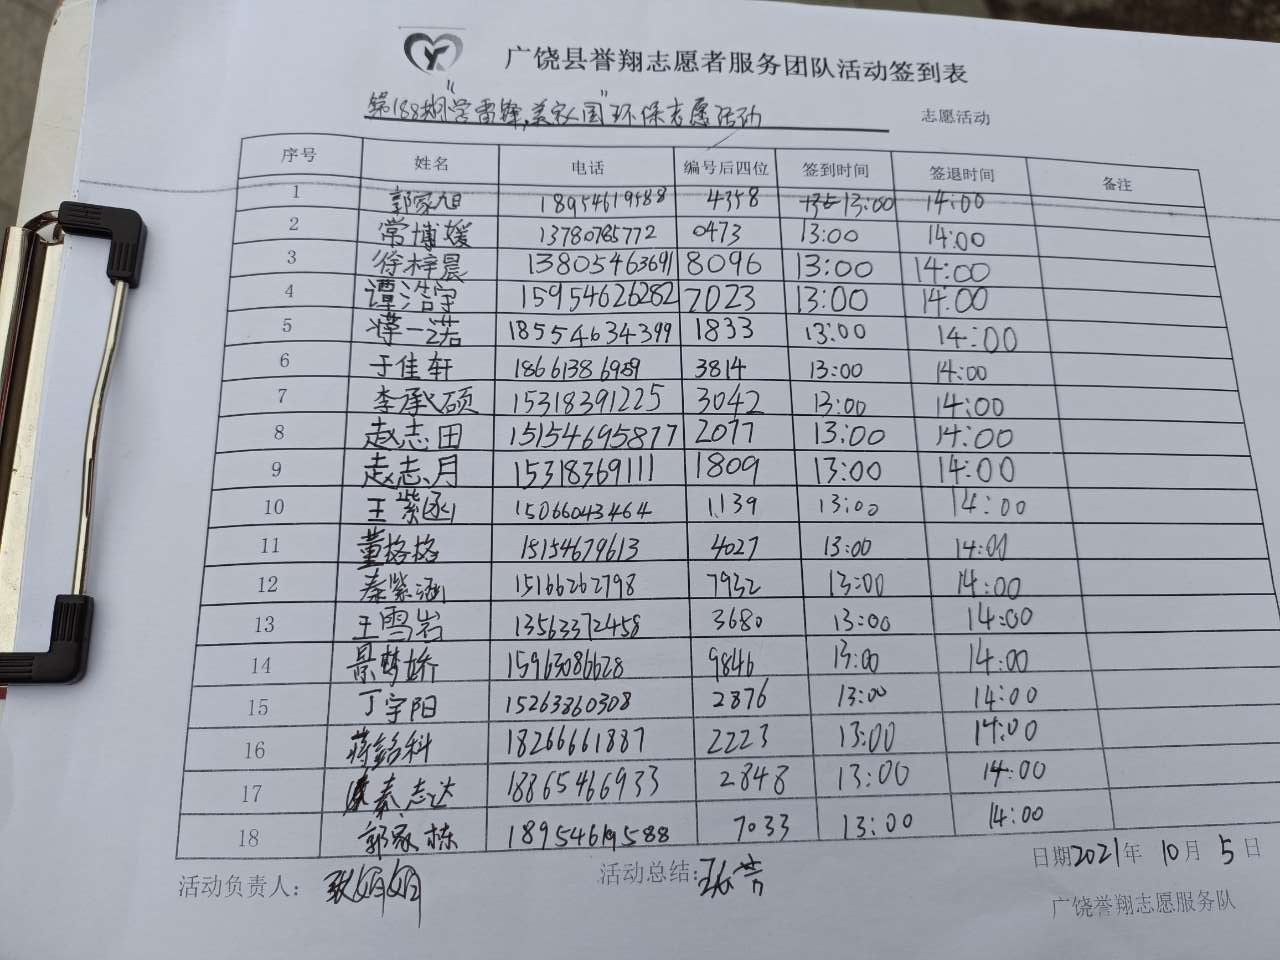 广饶县誉翔志愿者服务团队活动签到表
第188期"学雷锋,美家园"环保志愿活动 志愿活动
序号 姓名 电话 编号后四位 签到时间 签退时间 备注
1 郭家旭 18954619588 4358 13:00 14:00
2 常博媛 13780785772 0473 13:00 14:00
3 徐梓晨 13805463691 8096 13:00 14:00
4 谭浩宇 15954626282 7023 13:00 14:00
5 一诺 18554634399 1833 13:00 14:00
6 于佳轩 18661386989 3814 13:00 14:00
7 李承硕 15318391225 3042 13:00 14:00
8 赵志田 15154695877 2077 13:00 14:00
9 赵志月 15318369111 1809 13:00 14:00
10 王紫函 15066043464 1139 13:00 14:00
11 董格格 15154679613 4027 13:00 14:00
12 秦紫涵 15166262798 7932 13:00 14:00
13 王雪岩 13563372458 3680 13:00 14:00
14 景梦娇 15963086628 9846 13:00 14:00
15 丁宇阳 15263860308 2876 13:00 14:00
16 蒋铭科 18266661887 2223 13:00 14:00
17 秦志达 18865466933 2848 13:00 14:00
18 郭家栋 18954619588 7033 13:00 14:00
活动负责人: 张娟娟 活动总结: 张芳 日期2021年 10月 5日
广饶誉翔志愿服务队